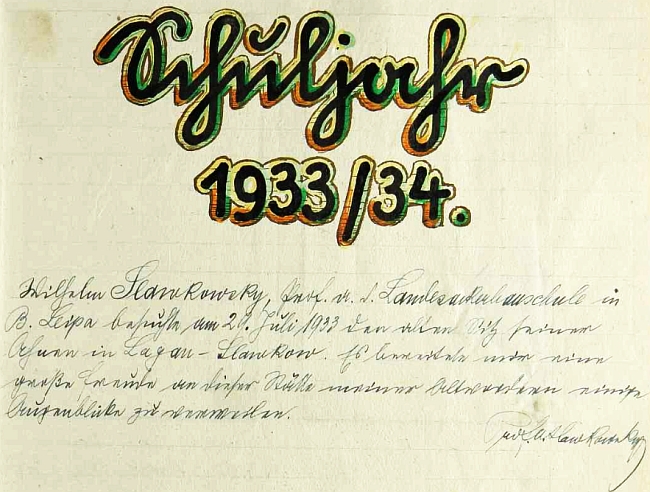 Schuljahr
1933/34.
Wilhelm Slawkowsky, Prof. a. d. Landesackerbauschule in
B. Leipa besuchte am 29. Juli 1933 den alten Sitz seiner
Ahnen in Lagau-Slawkow. Es bereitete mir eine
große Freude an dieser Stätte meiner Altvordern einige
Augenblicke zu verweilen.
Prof. W. Slawkowsky